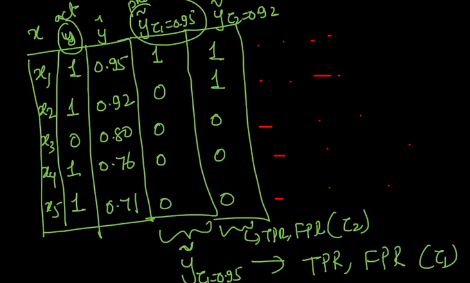 x act y ŷ pred ỹτ₁=0.95 ỹτ₂=0.92
x₁ 1 0.95 1 1
x₂ 1 0.92 0 1
x₃ 0 0.80 0 0
x₄ 1 0.76 0 0
x₅ 1 0.71 0 0
TPR, FPR (τ₂)
ỹτ₁=0.95 → TPR, FPR (τ₁)